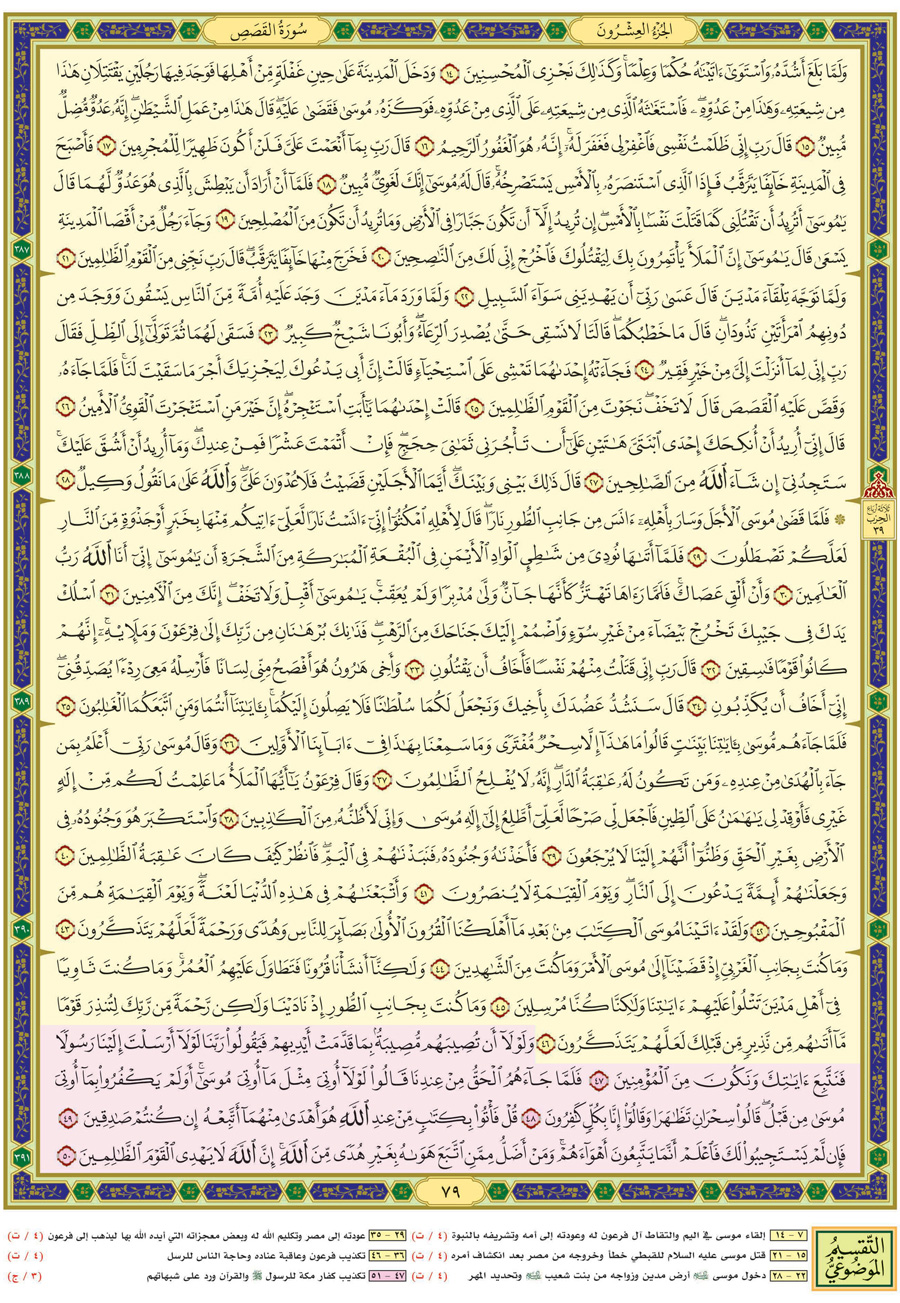 سُورَةُ القَصَصِ
الجُزْءُ العِشْرُونَ
وَلَمَّا بَلَغَ أَشُدَّهُۥ وَٱسْتَوَىٰٓ ءَاتَيْنَٰهُ حُكْمًا وَعِلْمًا ۚ وَكَذَٰلِكَ نَجْزِى ٱلْمُحْسِنِينَ ١٤ وَدَخَلَ ٱلْمَدِينَةَ عَلَىٰ حِينِ غَفْلَةٍ مِّنْ أَهْلِهَا فَوَجَدَ فِيهَا رَجُلَيْنِ يَقْتَتِلَانِ هَٰذَا
مِن شِيعَتِهِۦ وَهَٰذَا مِنْ عَدُوِّهِۦ ۖ فَٱسْتَغَٰثَهُ ٱلَّذِى مِن شِيعَتِهِۦ عَلَى ٱلَّذِى مِنْ عَدُوِّهِۦ فَوَكَزَهُۥ مُوسَىٰ فَقَضَىٰ عَلَيْهِ ۖ قَالَ هَٰذَا مِنْ عَمَلِ ٱلشَّيْطَٰنِ ۖ إِنَّهُۥ عَدُوٌّ مُّضِلٌّ
مُّبِينٌ ١٥ قَالَ رَبِّ إِنِّى ظَلَمْتُ نَفْسِى فَٱغْفِرْ لِى فَغَفَرَ لَهُۥٓ ۚ إِنَّهُۥ هُوَ ٱلْغَفُورُ ٱلرَّحِيمُ ١٦ قَالَ رَبِّ بِمَآ أَنْعَمْتَ عَلَىَّ فَلَنْ أَكُونَ ظَهِيرًا لِّلْمُجْرِمِينَ ١٧ فَأَصْبَحَ
فِى ٱلْمَدِينَةِ خَآئِفًا يَتَرَقَّبُ فَإِذَا ٱلَّذِى ٱسْتَنصَرَهُۥ بِٱلْأَمْسِ يَسْتَصْرِخُهُۥ ۚ قَالَ لَهُۥ مُوسَىٰٓ إِنَّكَ لَغَوِىٌّ مُّبِينٌ ١٨ فَلَمَّآ أَنْ أَرَادَ أَن يَبْطِشَ بِٱلَّذِى هُوَ عَدُوٌّ لَّهُمَا قَالَ
يَٰمُوسَىٰٓ أَتُرِيدُ أَن تَقْتُلَنِى كَمَا قَتَلْتَ نَفْسًۢا بِٱلْأَمْسِ ۖ إِن تُرِيدُ إِلَّآ أَن تَكُونَ جَبَّارًا فِى ٱلْأَرْضِ وَمَا تُرِيدُ أَن تَكُونَ مِنَ ٱلْمُصْلِحِينَ ١٩ وَجَآءَ رَجُلٌ مِّنْ أَقْصَا ٱلْمَدِينَةِ
يَسْعَىٰ قَالَ يَٰمُوسَىٰٓ إِنَّ ٱلْمَلَأَ يَأْتَمِرُونَ بِكَ لِيَقْتُلُوكَ فَٱخْرُجْ إِنِّى لَكَ مِنَ ٱلنَّٰصِحِينَ ٢٠ فَخَرَجَ مِنْهَا خَآئِفًا يَتَرَقَّبُ ۖ قَالَ رَبِّ نَجِّنِى مِنَ ٱلْقَوْمِ ٱلظَّٰلِمِينَ ٢١
وَلَمَّا تَوَجَّهَ تِلْقَآءَ مَدْيَنَ قَالَ عَسَىٰ رَبِّىٓ أَن يَهْدِيَنِى سَوَآءَ ٱلسَّبِيلِ ٢٢ وَلَمَّا وَرَدَ مَآءَ مَدْيَنَ وَجَدَ عَلَيْهِ أُمَّةً مِّنَ ٱلنَّاسِ يَسْقُونَ وَوَجَدَ مِن
دُونِهِمُ ٱمْرَأَتَيْنِ تَذُودَانِ ۖ قَالَ مَا خَطْبُكُمَا ۖ قَالَتَا لَا نَسْقِى حَتَّىٰ يُصْدِرَ ٱلرِّعَآءُ ۖ وَأَبُونَا شَيْخٌ كَبِيرٌ ٢٣ فَسَقَىٰ لَهُمَا ثُمَّ تَوَلَّىٰٓ إِلَى ٱلظِّلِّ فَقَالَ
رَبِّ إِنِّى لِمَآ أَنزَلْتَ إِلَىَّ مِنْ خَيْرٍ فَقِيرٌ ٢٤ فَجَآءَتْهُ إِحْدَىٰهُمَا تَمْشِى عَلَى ٱسْتِحْيَآءٍ قَالَتْ إِنَّ أَبِى يَدْعُوكَ لِيَجْزِيَكَ أَجْرَ مَا سَقَيْتَ لَنَا ۚ فَلَمَّا جَآءَهُۥ
وَقَصَّ عَلَيْهِ ٱلْقَصَصَ قَالَ لَا تَخَفْ ۖ نَجَوْتَ مِنَ ٱلْقَوْمِ ٱلظَّٰلِمِينَ ٢٥ قَالَتْ إِحْدَىٰهُمَا يَٰٓأَبَتِ ٱسْتَـْٔجِرْهُ ۖ إِنَّ خَيْرَ مَنِ ٱسْتَـْٔجَرْتَ ٱلْقَوِىُّ ٱلْأَمِينُ ٢٦
قَالَ إِنِّىٓ أُرِيدُ أَنْ أُنكِحَكَ إِحْدَى ٱبْنَتَىَّ هَٰتَيْنِ عَلَىٰٓ أَن تَأْجُرَنِى ثَمَٰنِىَ حِجَجٍ ۖ فَإِنْ أَتْمَمْتَ عَشْرًا فَمِنْ عِندِكَ ۖ وَمَآ أُرِيدُ أَنْ أَشُقَّ عَلَيْكَ ۚ
سَتَجِدُنِىٓ إِن شَآءَ ٱللَّهُ مِنَ ٱلصَّٰلِحِينَ ٢٧ قَالَ ذَٰلِكَ بَيْنِى وَبَيْنَكَ ۖ أَيَّمَا ٱلْأَجَلَيْنِ قَضَيْتُ فَلَا عُدْوَٰنَ عَلَىَّ ۖ وَٱللَّهُ عَلَىٰ مَا نَقُولُ وَكِيلٌ ٢٨
۞ فَلَمَّا قَضَىٰ مُوسَى ٱلْأَجَلَ وَسَارَ بِأَهْلِهِۦٓ ءَانَسَ مِن جَانِبِ ٱلطُّورِ نَارًا ۖ قَالَ لِأَهْلِهِ ٱمْكُثُوٓا۟ إِنِّىٓ ءَانَسْتُ نَارًا لَّعَلِّىٓ ءَاتِيكُم مِّنْهَا بِخَبَرٍ أَوْ جَذْوَةٍ مِّنَ ٱلنَّارِ
لَعَلَّكُمْ تَصْطَلُونَ ٢٩ فَلَمَّآ أَتَىٰهَا نُودِىَ مِن شَٰطِئِ ٱلْوَادِ ٱلْأَيْمَنِ فِى ٱلْبُقْعَةِ ٱلْمُبَٰرَكَةِ مِنَ ٱلشَّجَرَةِ أَن يَٰمُوسَىٰٓ إِنِّىٓ أَنَا ٱللَّهُ رَبُّ
ٱلْعَٰلَمِينَ ٣٠ وَأَنْ أَلْقِ عَصَاكَ ۖ فَلَمَّا رَءَاهَا تَهْتَزُّ كَأَنَّهَا جَآنٌّ وَلَّىٰ مُدْبِرًا وَلَمْ يُعَقِّبْ ۚ يَٰمُوسَىٰٓ أَقْبِلْ وَلَا تَخَفْ ۖ إِنَّكَ مِنَ ٱلْـَٔامِنِينَ ٣١ ٱسْلُكْ
يَدَكَ فِى جَيْبِكَ تَخْرُجْ بَيْضَآءَ مِنْ غَيْرِ سُوٓءٍ وَٱضْمُمْ إِلَيْكَ جَنَاحَكَ مِنَ ٱلرَّهْبِ ۖ فَذَٰنِكَ بُرْهَٰنَانِ مِن رَّبِّكَ إِلَىٰ فِرْعَوْنَ وَمَلَإِي۟هِۦٓ ۚ إِنَّهُمْ
كَانُوا۟ قَوْمًا فَٰسِقِينَ ٣٢ قَالَ رَبِّ إِنِّى قَتَلْتُ مِنْهُمْ نَفْسًا فَأَخَافُ أَن يَقْتُلُونِ ٣٣ وَأَخِى هَٰرُونُ هُوَ أَفْصَحُ مِنِّى لِسَانًا فَأَرْسِلْهُ مَعِىَ رِدْءًا يُصَدِّقُنِىٓ ۖ
إِنِّىٓ أَخَافُ أَن يُكَذِّبُونِ ٣٤ قَالَ سَنَشُدُّ عَضُدَكَ بِأَخِيكَ وَنَجْعَلُ لَكُمَا سُلْطَٰنًا فَلَا يَصِلُونَ إِلَيْكُمَا ۚ بِـَٔايَٰتِنَآ أَنتُمَا وَمَنِ ٱتَّبَعَكُمَا ٱلْغَٰلِبُونَ ٣٥
فَلَمَّا جَآءَهُم مُّوسَىٰ بِـَٔايَٰتِنَا بَيِّنَٰتٍ قَالُوا۟ مَا هَٰذَآ إِلَّا سِحْرٌ مُّفْتَرًى وَمَا سَمِعْنَا بِهَٰذَا فِىٓ ءَابَآئِنَا ٱلْأَوَّلِينَ ٣٦ وَقَالَ مُوسَىٰ رَبِّىٓ أَعْلَمُ بِمَن
جَآءَ بِٱلْهُدَىٰ مِنْ عِندِهِۦ وَمَن تَكُونُ لَهُۥ عَٰقِبَةُ ٱلدَّارِ ۖ إِنَّهُۥ لَا يُفْلِحُ ٱلظَّٰلِمُونَ ٣٧ وَقَالَ فِرْعَوْنُ يَٰٓأَيُّهَا ٱلْمَلَأُ مَا عَلِمْتُ لَكُم مِّنْ إِلَٰهٍ
غَيْرِى فَأَوْقِدْ لِى يَٰهَٰمَٰنُ عَلَى ٱلطِّينِ فَٱجْعَل لِّى صَرْحًا لَّعَلِّىٓ أَطَّلِعُ إِلَىٰٓ إِلَٰهِ مُوسَىٰ وَإِنِّى لَأَظُنُّهُۥ مِنَ ٱلْكَٰذِبِينَ ٣٨ وَٱسْتَكْبَرَ هُوَ وَجُنُودُهُۥ فِى
ٱلْأَرْضِ بِغَيْرِ ٱلْحَقِّ وَظَنُّوٓا۟ أَنَّهُمْ إِلَيْنَا لَا يُرْجَعُونَ ٣٩ فَأَخَذْنَٰهُ وَجُنُودَهُۥ فَنَبَذْنَٰهُمْ فِى ٱلْيَمِّ ۖ فَٱنظُرْ كَيْفَ كَانَ عَٰقِبَةُ ٱلظَّٰلِمِينَ ٤٠
وَجَعَلْنَٰهُمْ أَئِمَّةً يَدْعُونَ إِلَى ٱلنَّارِ ۖ وَيَوْمَ ٱلْقِيَٰمَةِ لَا يُنصَرُونَ ٤١ وَأَتْبَعْنَٰهُمْ فِى هَٰذِهِ ٱلدُّنْيَا لَعْنَةً ۖ وَيَوْمَ ٱلْقِيَٰمَةِ هُم مِّنَ
ٱلْمَقْبُوحِينَ ٤٢ وَلَقَدْ ءَاتَيْنَا مُوسَى ٱلْكِتَٰبَ مِنۢ بَعْدِ مَآ أَهْلَكْنَا ٱلْقُرُونَ ٱلْأُولَىٰ بَصَآئِرَ لِلنَّاسِ وَهُدًى وَرَحْمَةً لَّعَلَّهُمْ يَتَذَكَّرُونَ ٤٣
وَمَا كُنتَ بِجَانِبِ ٱلْغَرْبِىِّ إِذْ قَضَيْنَآ إِلَىٰ مُوسَى ٱلْأَمْرَ وَمَا كُنتَ مِنَ ٱلشَّٰهِدِينَ ٤٤ وَلَٰكِنَّآ أَنشَأْنَا قُرُونًا فَتَطَاوَلَ عَلَيْهِمُ ٱلْعُمُرُ ۚ وَمَا كُنتَ ثَاوِيًا
فِىٓ أَهْلِ مَدْيَنَ تَتْلُوا۟ عَلَيْهِمْ ءَايَٰتِنَا وَلَٰكِنَّا كُنَّا مُرْسِلِينَ ٤٥ وَمَا كُنتَ بِجَانِبِ ٱلطُّورِ إِذْ نَادَيْنَا وَلَٰكِن رَّحْمَةً مِّن رَّبِّكَ لِتُنذِرَ قَوْمًا
مَّآ أَتَىٰهُم مِّن نَّذِيرٍ مِّن قَبْلِكَ لَعَلَّهُمْ يَتَذَكَّرُونَ ٤٦ وَلَوْلَآ أَن تُصِيبَهُم مُّصِيبَةٌۢ بِمَا قَدَّمَتْ أَيْدِيهِمْ فَيَقُولُوا۟ رَبَّنَا لَوْلَآ أَرْسَلْتَ إِلَيْنَا رَسُولًا
فَنَتَّبِعَ ءَايَٰتِكَ وَنَكُونَ مِنَ ٱلْمُؤْمِنِينَ ٤٧ فَلَمَّا جَآءَهُمُ ٱلْحَقُّ مِنْ عِندِنَا قَالُوا۟ لَوْلَآ أُوتِىَ مِثْلَ مَآ أُوتِىَ مُوسَىٰٓ ۚ أَوَلَمْ يَكْفُرُوا۟ بِمَآ أُوتِىَ
مُوسَىٰ مِن قَبْلُ ۖ قَالُوا۟ سِحْرَانِ تَظَٰهَرَا وَقَالُوٓا۟ إِنَّا بِكُلٍّ كَٰفِرُونَ ٤٨ قُلْ فَأْتُوا۟ بِكِتَٰبٍ مِّنْ عِندِ ٱللَّهِ هُوَ أَهْدَىٰ مِنْهُمَآ أَتَّبِعْهُ إِن كُنتُمْ صَٰدِقِينَ ٤٩
فَإِن لَّمْ يَسْتَجِيبُوا۟ لَكَ فَٱعْلَمْ أَنَّمَا يَتَّبِعُونَ أَهْوَآءَهُمْ ۚ وَمَنْ أَضَلُّ مِمَّنِ ٱتَّبَعَ هَوَىٰهُ بِغَيْرِ هُدًى مِّنَ ٱللَّهِ ۚ إِنَّ ٱللَّهَ لَا يَهْدِى ٱلْقَوْمَ ٱلظَّٰلِمِينَ ٥٠
٣٨٧
٣٨٨
٣٨٩
٣٩٠
٣٩١
ثلاثة أرباع
الحزب
٣٩
٧٩
التقسيم
الموضوعي
٧ - ١٤ إلقاء موسى في اليم والتقاط آل فرعون له وعودته إلى أمه وتشريفه بالنبوة (٤ / ت)
١٥ - ٢١ قتل موسى عليه السلام للقبطي خطأ وخروجه من مصر بعد انكشاف أمره (٤ / ت)
٢٢ - ٢٨ دخول موسى ﷺ أرض مدين وزواجه من بنت شعيب ﷺ وتحديد المهر (٤ / ت)
٢٩ - ٣٥ عودته إلى مصر وتكليم الله له وبعض معجزاته التي أيده الله بها ليذهب إلى فرعون (٤ / ت)
٣٦ - ٤٦ تكذيب فرعون وعاقبة عناده وحاجة الناس للرسل (٤ / ت)
٤٧ - ٥١ تكذيب كفار مكة للرسول ﷺ والقرآن ورد على شبهاتهم (٣ / ج)